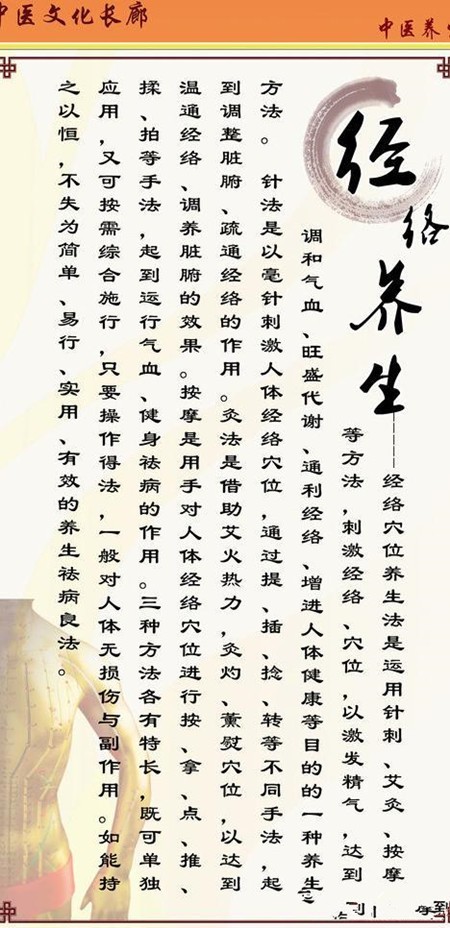 中医文化长廊
中医养生
经络养生
——经络穴位养生法是运用针刺、艾灸、按摩
等方法，刺激经络、穴位，以激发精气，达到
调和气血、旺盛代谢、通利经络、增进人体健康等目的的一种养生
方法。 针法是以毫针刺激人体经络穴位，通过提、插、捻、转等不同手法，起
到调整脏腑、疏通经络的作用。灸法是借助艾火热力，灸灼、薰熨穴位，以达到
温通经络、调养脏腑的效果。按摩是用手对人体经络穴位进行按、拿、点、推、
揉、拍等手法，起到运行气血、健身祛病的作用。三种方法各有特长，既可单独
应用，又可按需综合施行，只要操作得法，一般对人体无损伤与副作用。如能持
之以恒，不失为简单、易行、实用、有效的养生祛病良法。